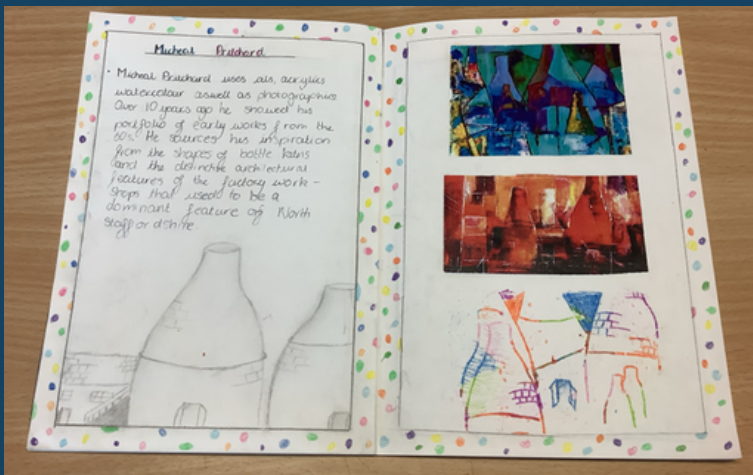 Micheal Pritchard
• Micheal Pritchard uses oils, acrylics
watercolour aswell as photographics
Over 10 years ago he showed his
portfolio of early works from the
60s. He sources his inspiration
from the shapes of bottle kilns
and the distinctive architectural
features of the factory work-
shops that used to be a
dominant feature of North
Staffordshire